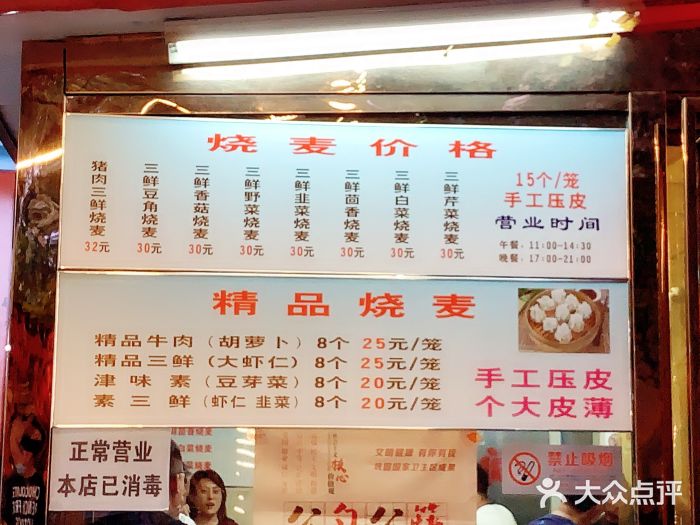 烧麦价格
猪肉三鲜烧麦 32元
三鲜豆角烧麦 30元
三鲜香菇烧麦 30元
三鲜野菜烧麦 30元
三鲜韭菜烧麦 30元
三鲜茴香烧麦 30元
三鲜白菜烧麦 30元
三鲜芹菜烧麦 30元
15个/笼
手工压皮
营业时间
午餐：11:00-14:30
晚餐：17:00-21:00
精品烧麦
精品牛肉（胡萝卜）8个 25元/笼
精品三鲜（大虾仁）8个 25元/笼
津味素（豆芽菜）8个 20元/笼
素三鲜（虾仁 韭菜）8个 20元/笼
手工压皮
个大皮薄
正常营业
本店已消毒
文明餐桌 有你有我
巩固国家卫生区成果
禁止吸烟
大众点评